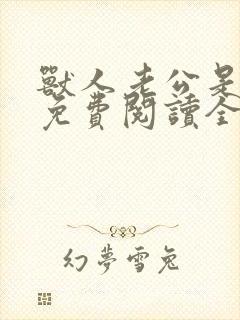 獸人老公是
免費閱讀全
幻夢雪兔